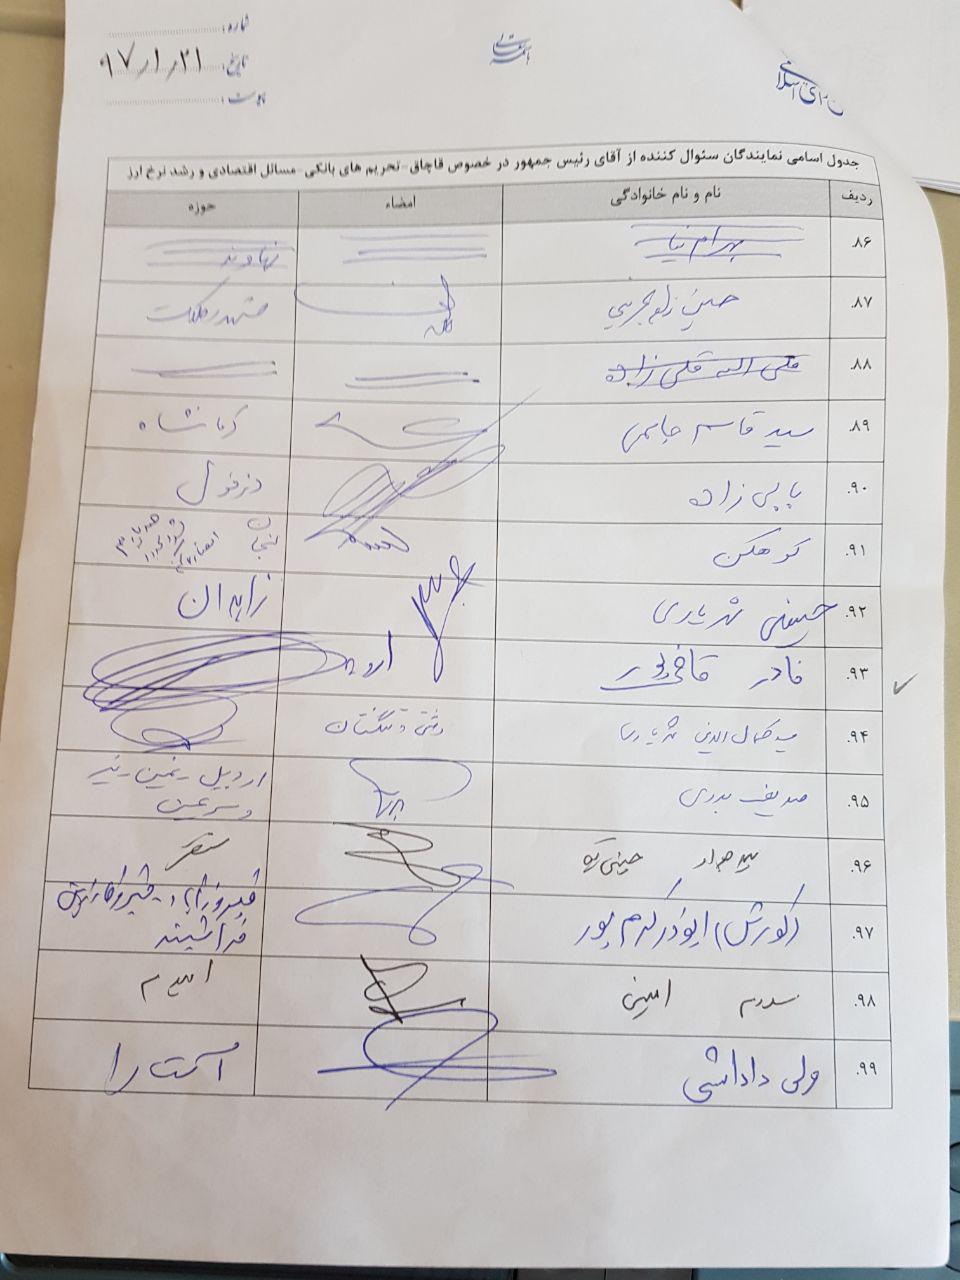 شماره:
تاریخ: ۹۷/۱/۲۱
پیوست:
جدول اسامی نمایندگان سئوال کننده از آقای رئیس جمهور در خصوص قاچاق-تحریم های بانکی-مسائل اقتصادی و رشد نرخ ارز
ردیف نام و نام خانوادگی امضاء حوزه
۸۶. بهرام نیا نهاوند
۸۷. مشهد و کلات
۸۸. قلی الله قلی زاده
۸۹. سید قاسم جاسمی کرمانشاه
۹۰. پاپی زاده دزفول
۹۱. کوهکن لنجان
۹۲. حسینعلی شهریاری زاهدان
۹۳. قادر قاضی پور ارومیه
۹۴. سید کمال الدین شهریاری دشتی و تنگستان
۹۵. صدیف بدری اردبیل نمین نیر
و سرعین
۹۶. سید جواد حسینی کیا سنقر
۹۷. (کورش) ابوذر کرم پور فیروزآباد - قیروکارزین
فراشبند
۹۸. سالار امینی
۹۹. ولی داداشی آستارا